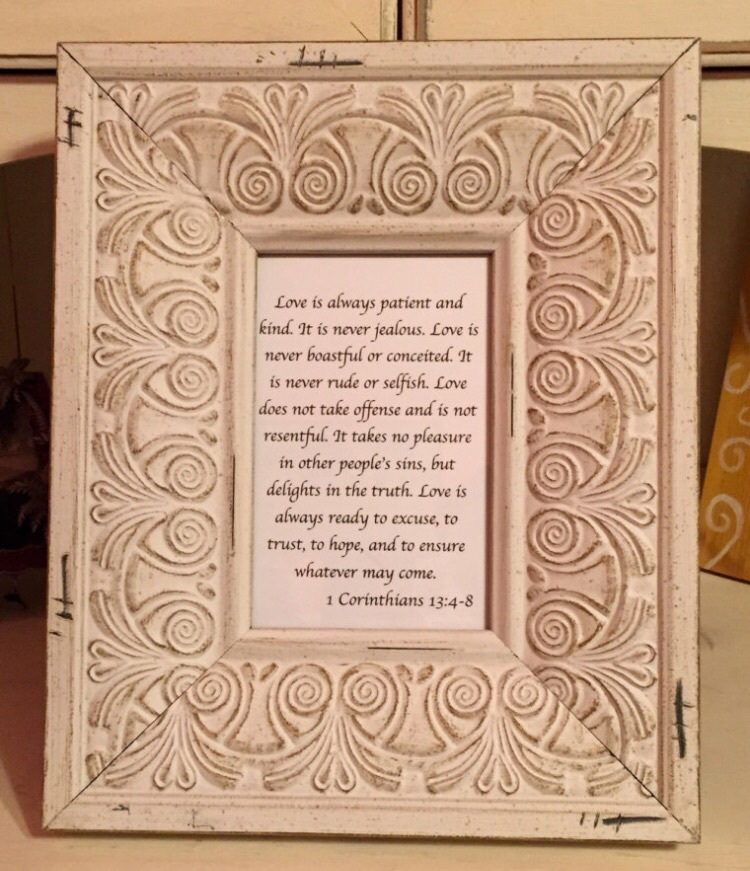 Love is always patient and
kind. It is never jealous. Love is
never boastful or conceited. It
is never rude or selfish. Love
does not take offense and is not
resentful. It takes no pleasure
in other people's sins, but
delights in the truth. Love is
always ready to excuse, to
trust, to hope, and to ensure
whatever may come.
1 Corinthians 13:4-8